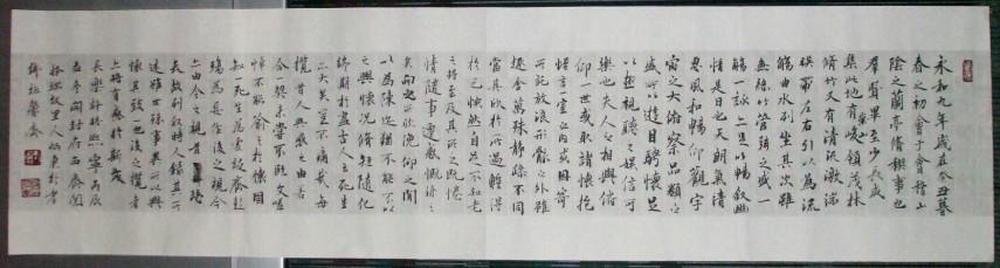 永和九年歲在癸丑暮
春之初會于會稽山
陰之蘭亭脩稧事也
群賢畢至少長咸
集此地有峻領茂林
脩竹又有清流激湍
暎帶左右引以為流
觴曲水列坐其次雖
無絲竹管弦之盛一
觴一詠亦足以暢叙幽
情是日也天朗氣清
惠風和暢仰觀宇
宙之大俯察品類之
盛所以遊目騁懷足
以極視聽之娛信可
樂也夫人之相與俯
仰一世或取諸懷抱
悟言一室之內或因寄
所託放浪形骸之外雖
趣舍萬殊靜躁不同
當其欣於所遇暫得
於己怏然自足不知老
之將至及其所之既惓
情隨事遷感慨係之
矣向之所欣俛仰之間
以為陳迹猶不能不以
之興懷況脩短隨化
終期於盡古人云死生
亦大矣豈不痛哉每
攬昔人興感之由
若合一契未嘗不臨文嗟
悼不能喻之於懷固
知一死生為虛誕齊彭
殤為妄作後之視今
亦由今之視昔
故列叙時人錄其所
述雖世殊事異所以興
懷其致一也後之攬者
亦將有感於斯文